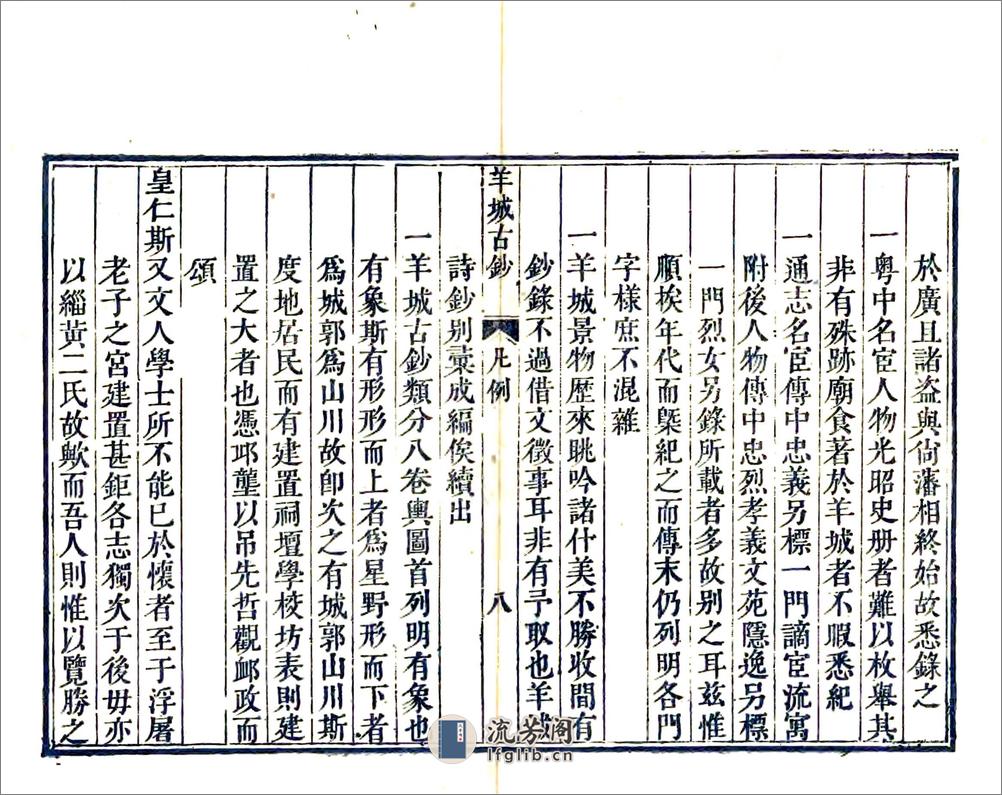 於廣且諸盜與尙藩相終始故悉錄之
一粤中名宦人物光昭史册者難以枚舉其
非有殊跡廟食著於羊城者不暇悉紀
一通志名宦傳中忠義另標一門謫宦流寓
附後人物傳中忠烈孝義文苑隱逸另標
一門烈女另錄所載者多故别之耳兹惟
順挨年代而槩紀之而傳末仍列明各門
字樣庶不混雜
一羊城景物歷來眺吟諸什美不勝收間有
鈔錄不過借文徵事耳非有予取也羊城
羊城古鈔 凡例 八
詩鈔别彚成編俟續出
一羊城古鈔類分八卷輿圖首列明有象也
有象斯有形形而上者爲星野形而下者
爲城郭爲山川故卽次之有城郭山川斯
度地居民而有建置祠壇學校坊表則建
置之大者也憑邱壟以吊先哲觀郵政而
頌
皇仁斯又文人學士所不能已於懷者至于浮屠
老子之宮建置甚鉅各志獨次于後毋亦
以緇黃二氏故歟而吾人則惟以覽勝之
流芳阁
lfglib.cn